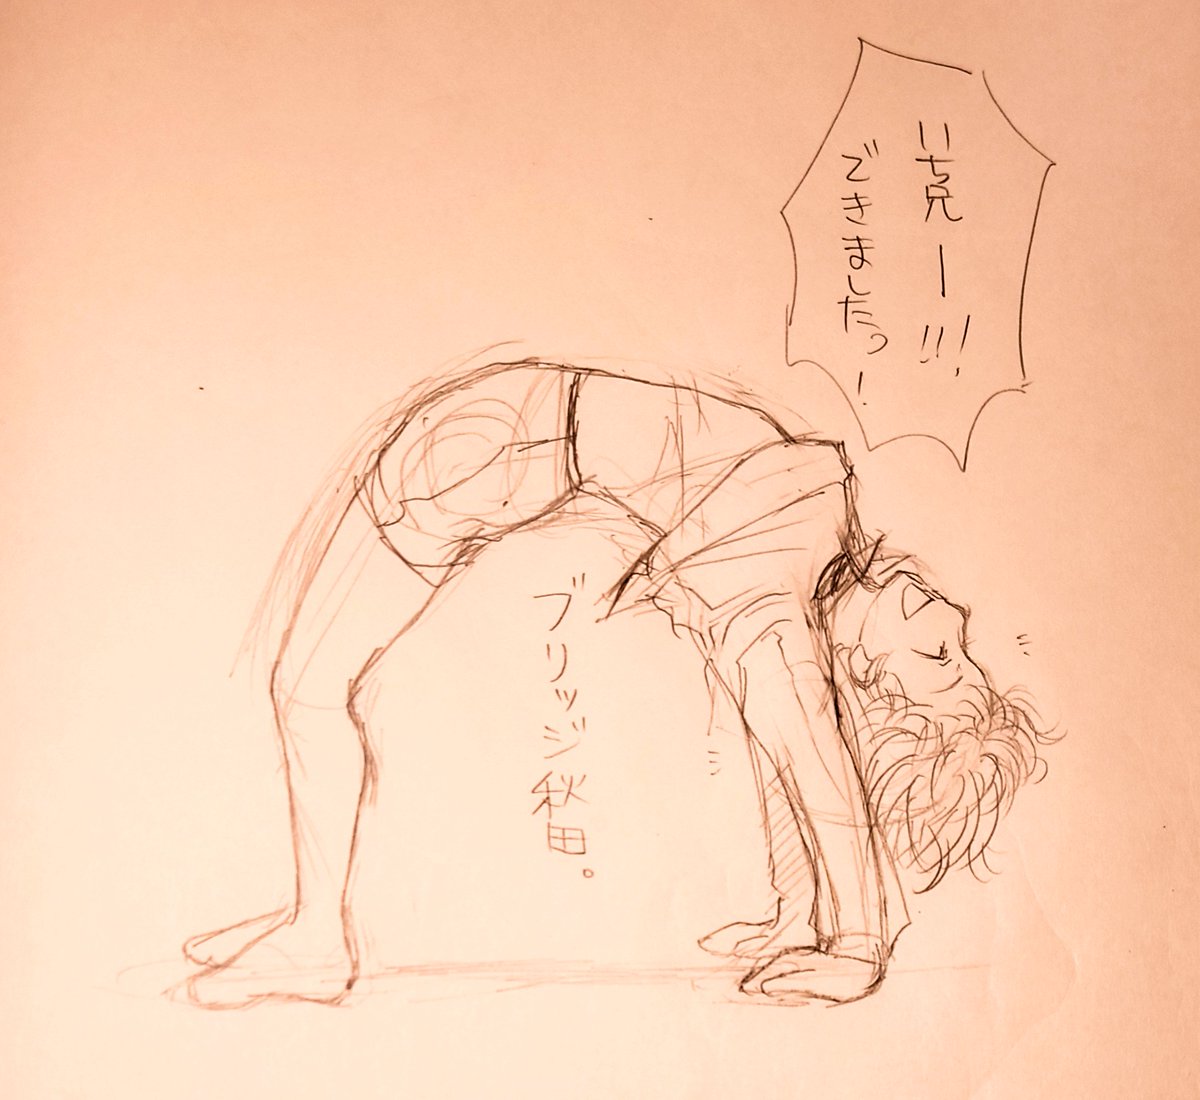 いち兄ー!!!
できましたっ!
ブリッジ秋田。